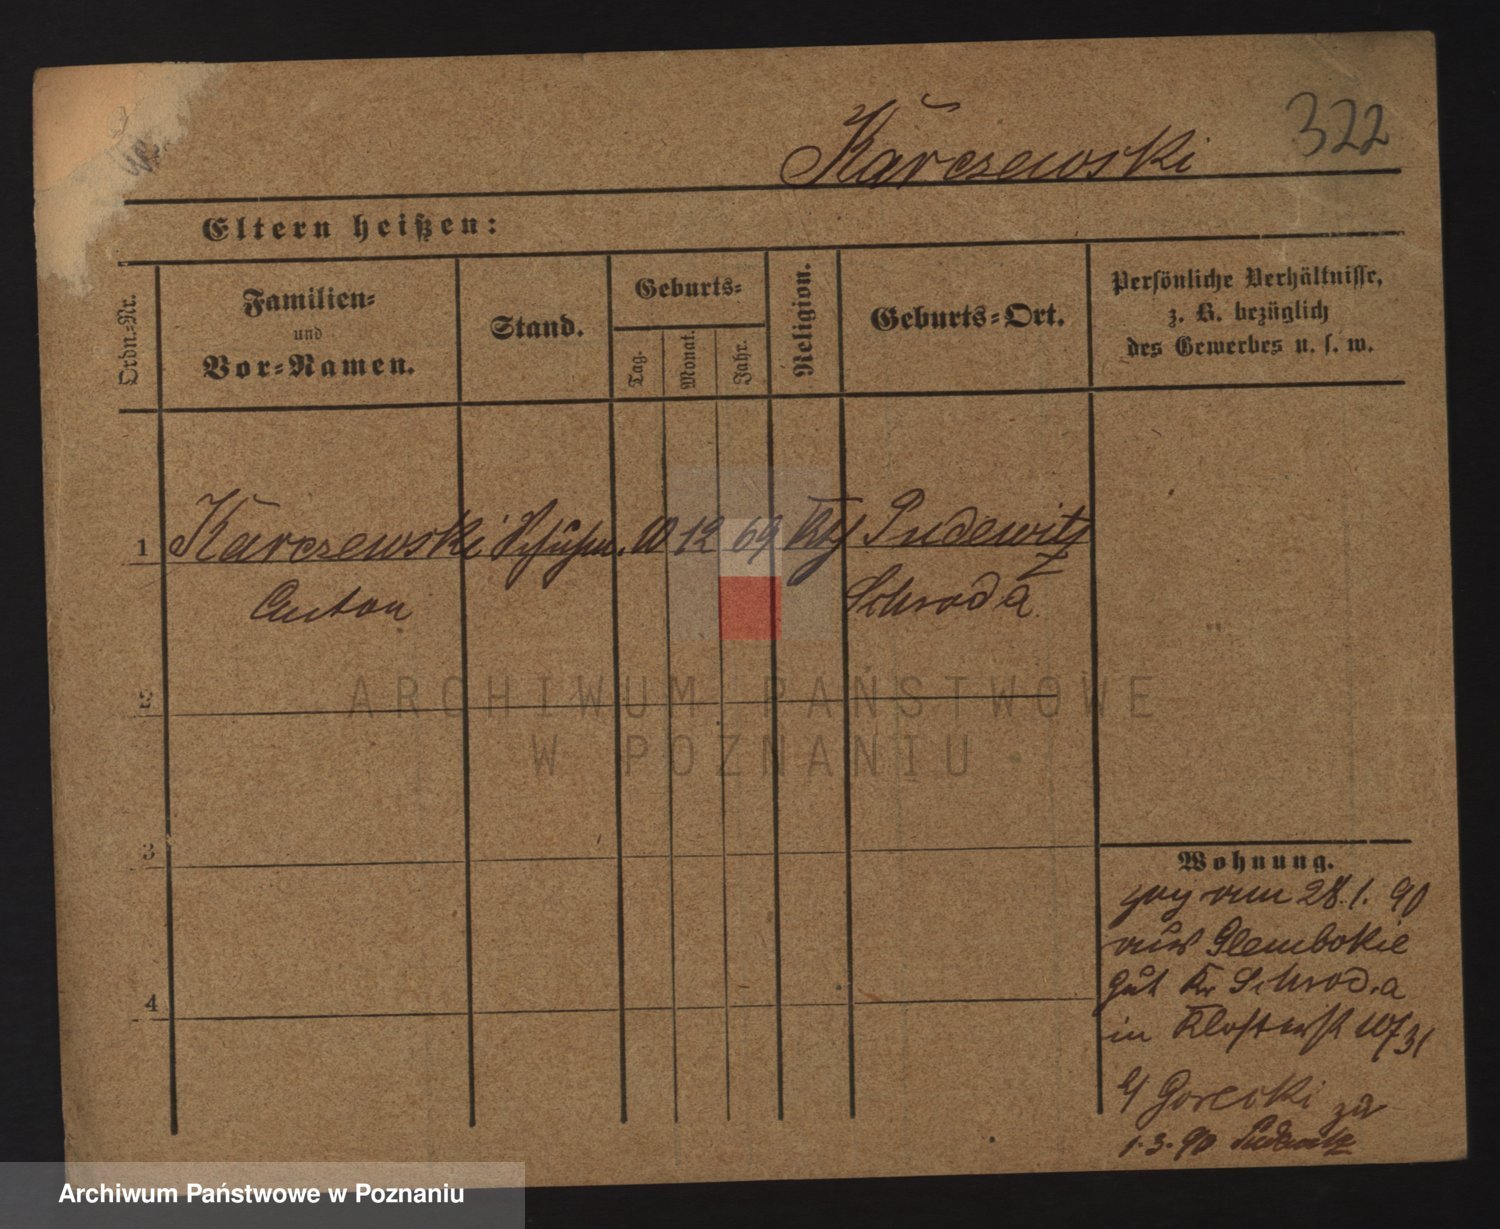 Karczewski 322
Eltern heißen:
Ordn.-Nr.
Familien-
und
Vor-Namen.
Stand.
Geburts-
Tag.
Monat.
Jahr.
Religion.
Geburts-Ort.
Persönliche Verhältnisse,
z. B. bezüglich
des Gewerbes u. s. w.
1 Karczewski Schuhm. 10 12 69 Kth Pudewitz
Anton Schroda
2
3
4
Wohnung.
zog am 28.1.90
aus Glembokie
gut Kr Schroda
in Klosterst 10/31
b/ Gorecki zu
1.3.90 Pudewitz
ARCHIWUM PAŃSTWOWE
W POZNANIU
Archiwum Państwowe w Poznaniu